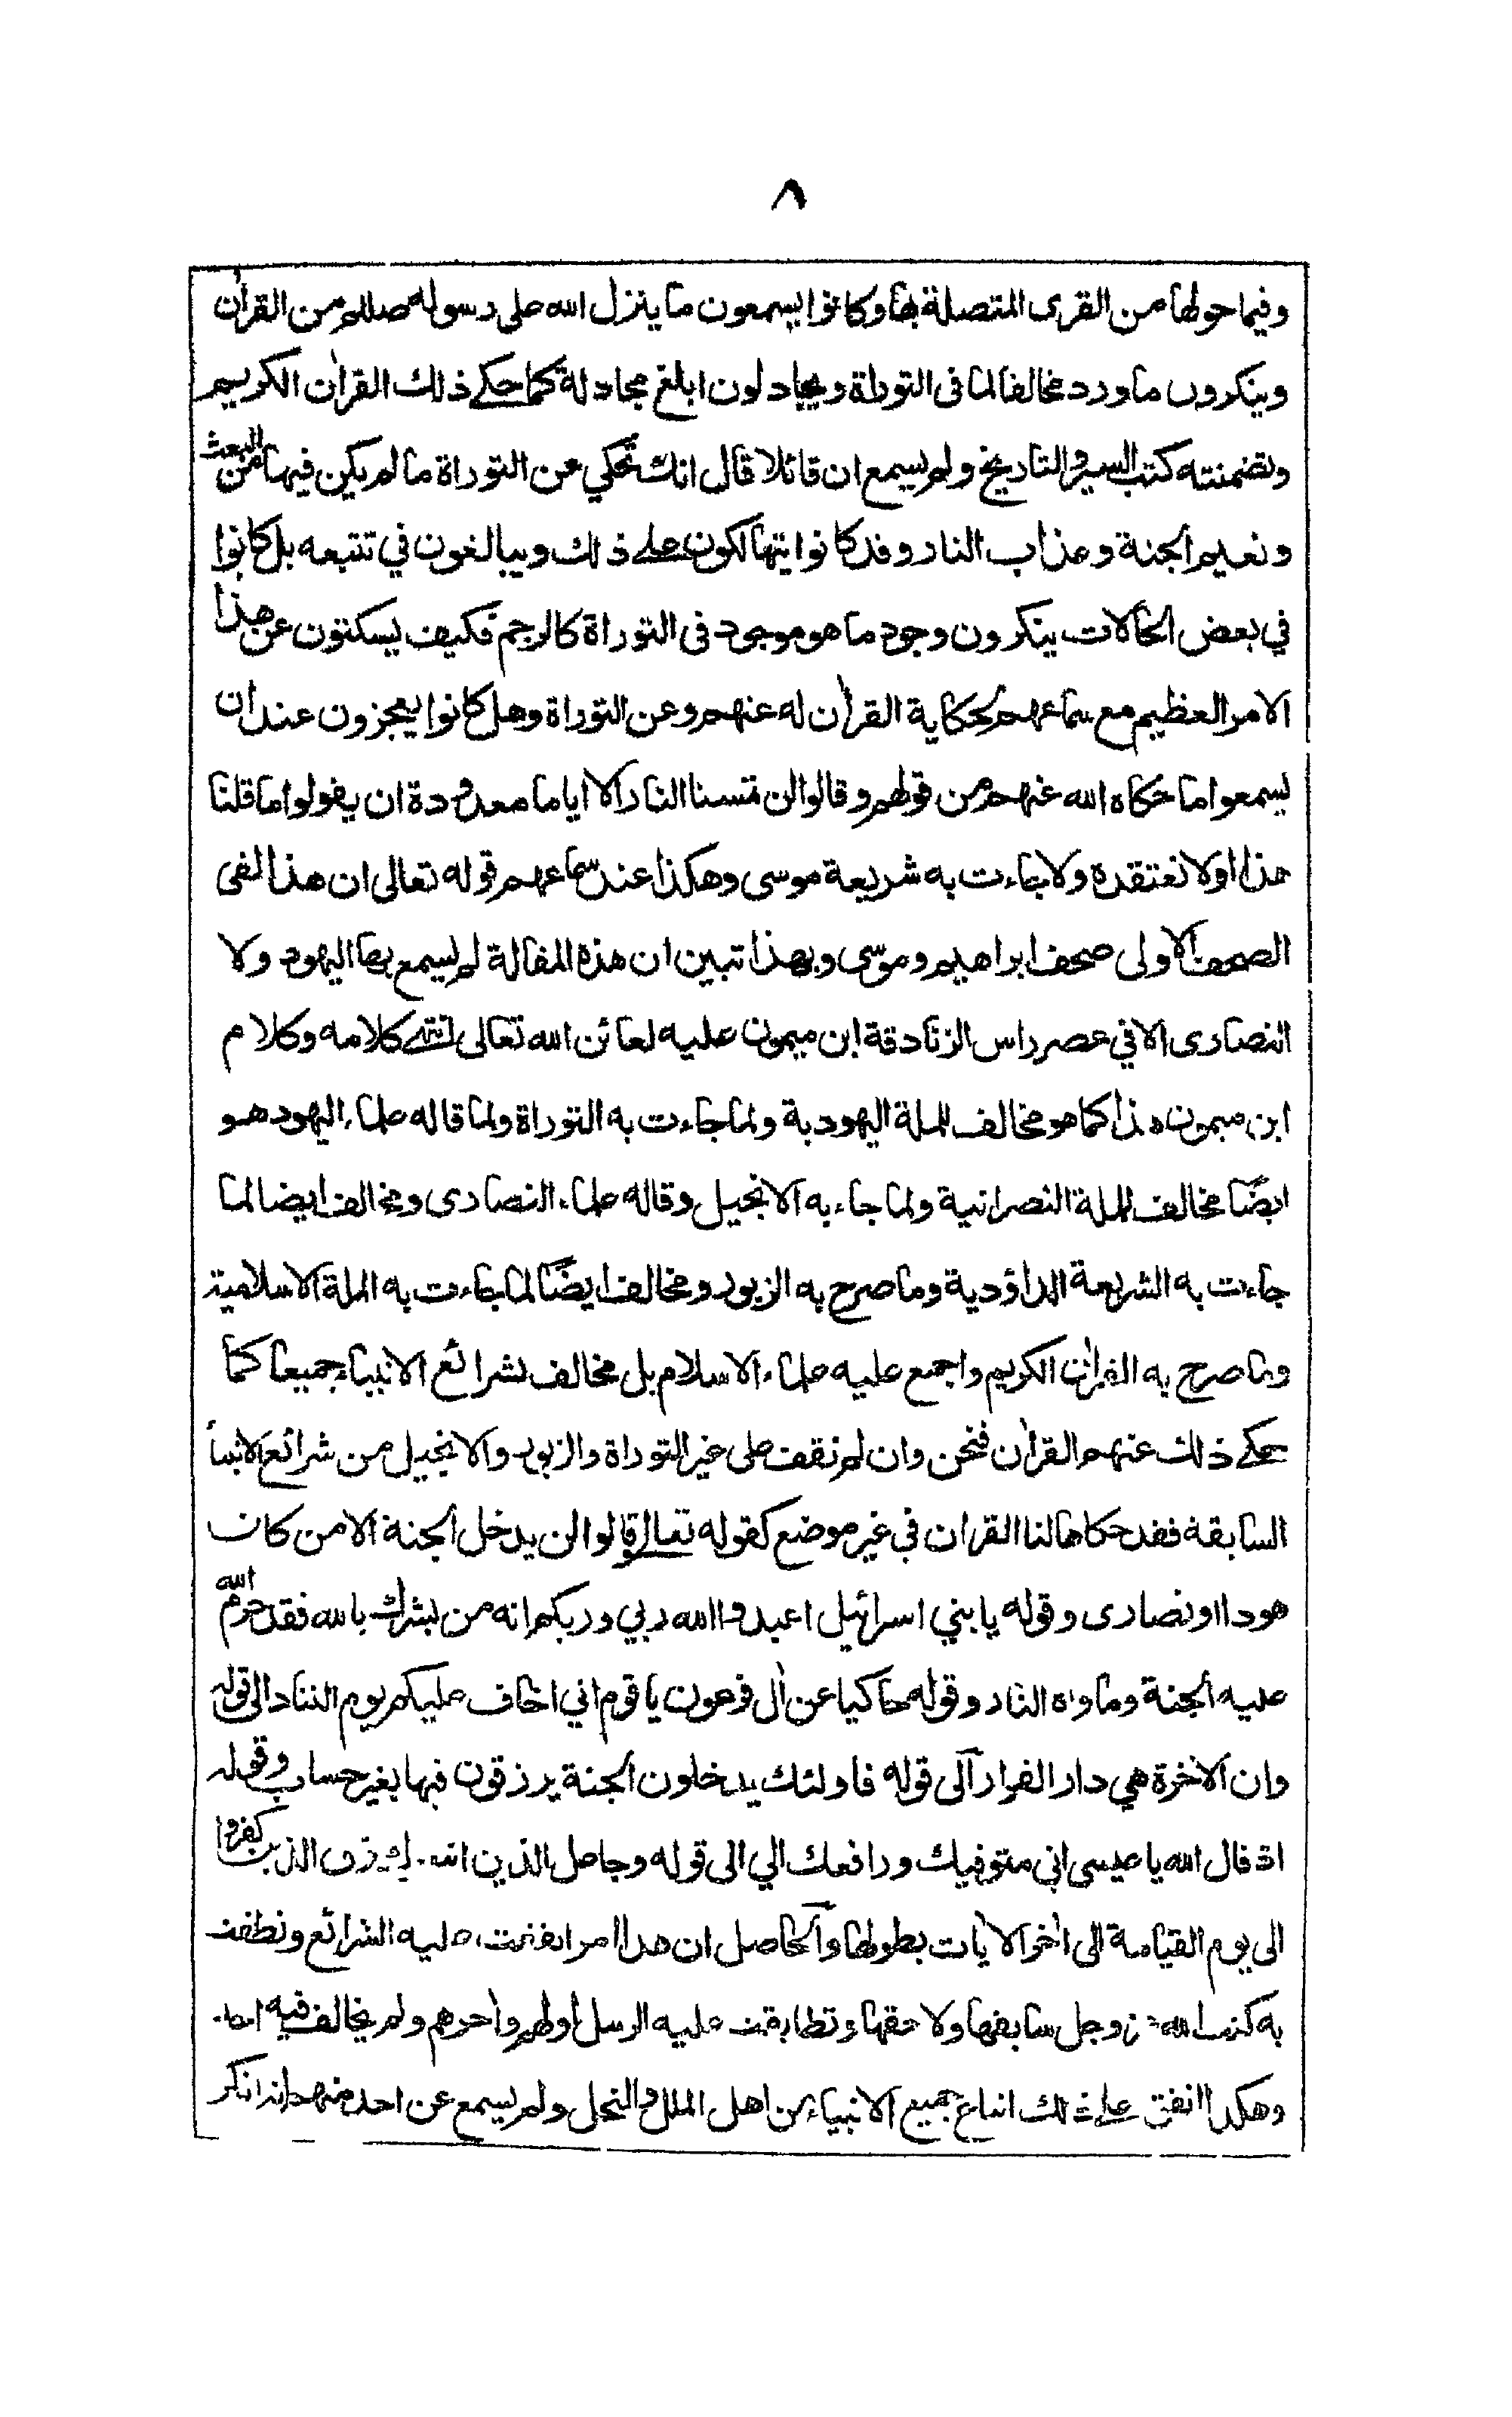 ٨
وفيما حولها من القرى المتصلة بها وكانوا يسمعون ما ينزل الله على رسوله صللم من القرآن
وينكرون ما ورد مخالفا لما فى التوراة ويجادلون ابلغ مجادلة كما حكے ذلك القرآن الكريم
وتضمنته كتب السير والتاريخ ولم يسمع ان قائلا قال انك تحكي عن التوراة ما لم يكن فيها من البعث
ونعيم الجنة وعذاب النار وقد كانوا يتهالكون علے ذلك ويبالغون في تتبعه بل كانوا
في بعض الحالات ينكرون وجود ما هو موجود فى التوراة كالرجم فكيف يسكتون عن هذا
الامر العظيم مع سماعهم لحكاية القرآن له عنهم وعن التوراة وهل كانوا يعجزون عند ان
يسمعوا ما حكاه الله عنهم من قولهم وقالوا لن تمسنا النار الا اياما معدودة ان يقولوا ما قلنا
هذا اولا نعتقده ولا جاءت به شريعة موسى وهكذا عند سماعهم قوله تعالى ان هذا لفى
الصحف الاولى صحف ابراهيم وموسى وبهذا تبين ان هذه المقالة لم يسمع بها اليهود ولا
النصارى الا في عصر راس الزنادقة ابن ميمون عليه لعائن الله تعالى انتهے كلامه وكلام
ابن ميمون هذا كما هو مخالف للملة اليهودية ولما جاءت به التوراة ولما قاله علماء اليهود هو
ايضًا مخالف للملة النصرانية ولما جاء به الانجيل وقاله علماء النصارى ومخالف ايضا لما
جاءت به الشريعة الداؤدية وما صرح به الزبور ومخالف ايضًا لما جاءت به الملة الاسلامية
وما صرح به القرآن الكريم واجمع عليه علماء الاسلام بل مخالف لشرائع الانبياء جميعا كما
حكے ذلك عنهم القرآن فنحن وان لم نقف على غير التوراة والزبور والانجيل من شرائع الانبيأ
السابقة فقد حكاها لنا القرآن في غير موضع كقوله تعالى وقالوا لن يدخل الجنة الا من كان
هودا او نصارى وقوله يا بني اسرائيل اعبدوا الله ربي وربكم انه من يشرك بالله فقد حرم الله
عليه الجنة وماواه النار وقوله حاكيا عن آل فرعون يا قوم اني اخاف عليكم يوم التناد الى قوله
وان الآخرة هي دار القرار الى قوله فاولئك يدخلون الجنة يرزقون فيها بغير حساب وقوله
اذ قال الله يا عيسى اني متوفيك ورافعك الي الى قوله وجاعل الذين اتبعوك فوق الذين كفروا
الى يوم القيامة الى آخر الآيات بطولها والحاصل ان هذا امر اتفقت عليه الشرائع ونطقت
به كتب الله عز وجل سابقها ولاحقها وتطابقت عليه الرسل اولهم وآخرهم ولم يخالف فيه احد
وهكذا اتفق علے ذلك اتباع جميع الانبياء من اهل الملل والنحل ولم يسمع عن احد منهم انه انكر